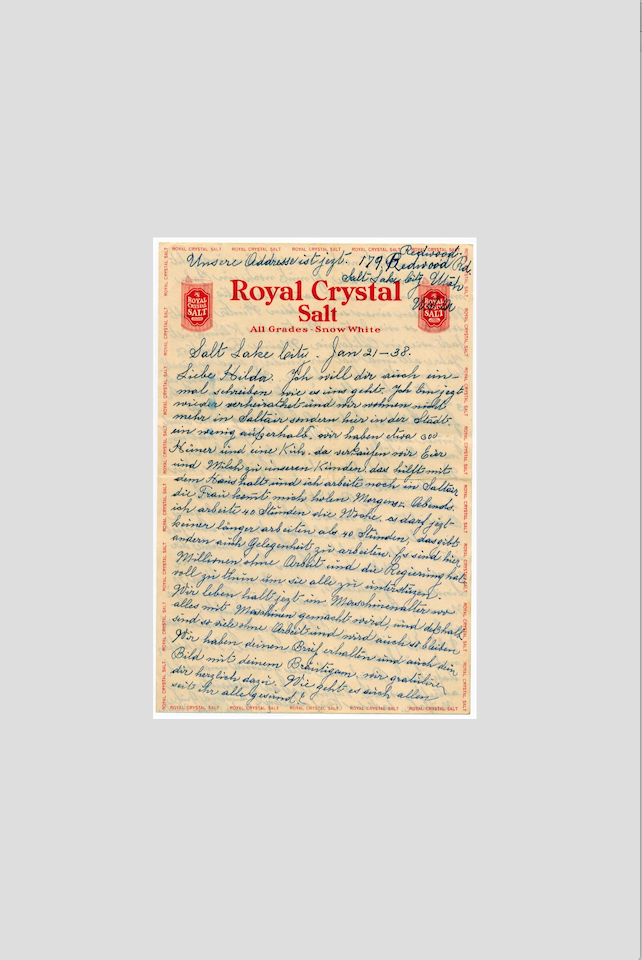 ROYAL CRYSTAL SALT ROYAL CRYSTAL SALT ROYAL CRYSTAL SALT ROYAL CRYSTAL SALT
Redwood.
Unsere Addresse ist jezt. 179 Redwood Rd.
Salt Lake City Utah
Utah
ROYAL CRYSTAL SALT
Royal Crystal
Salt
ROYAL CRYSTAL SALT
All Grades - Snow White
Salt Lake City. Jan 21-38.
Liebe Hilda. Ich will dir auch ein-
mal schreiben wie es uns geht. Ich bin jezt
wieder verheirathet und wir wohnen nicht
mehr in Saltair sondern hier in der Stadt
ein wenig auserhalb, wir haben etwa 300
Hüner und eine Kuh, da verkaufen wir Eier
und Milch zu unseren Kunden, das hilft mit
dem Haushalt und ich arbeite noch in Saltair
die Frau komt mich holen Morgens & Abends.
ich arbeite 40 Stunden die Woche, es darf jezt
keiner länger arbeiten als 40 Stunden, das gibt
andern auch Gelegenheit zu arbeiten. Es sind hier
Millionen ohne Arbeit und die Regierung hat
voll zu thun um sie alle zu unterstüzen.
Wir leben halt jezt im Maschinenalter wo
alles mit Maschinen gemacht wird, und deshalb
sind so viele ohne Arbeit und wird auch so bleiben
Wir haben deinen Brief erhalten und auch dein
Bild mit deinem Bräutigam, wir gratulieren
dir herzlich dazu. Wie geht es euch allen
seit ihr alle gesund!
ROYAL CRYSTAL SALT ROYAL CRYSTAL SALT ROYAL CRYSTAL SALT ROYAL CRYSTAL SALT ROYAL CRYSTAL SALT